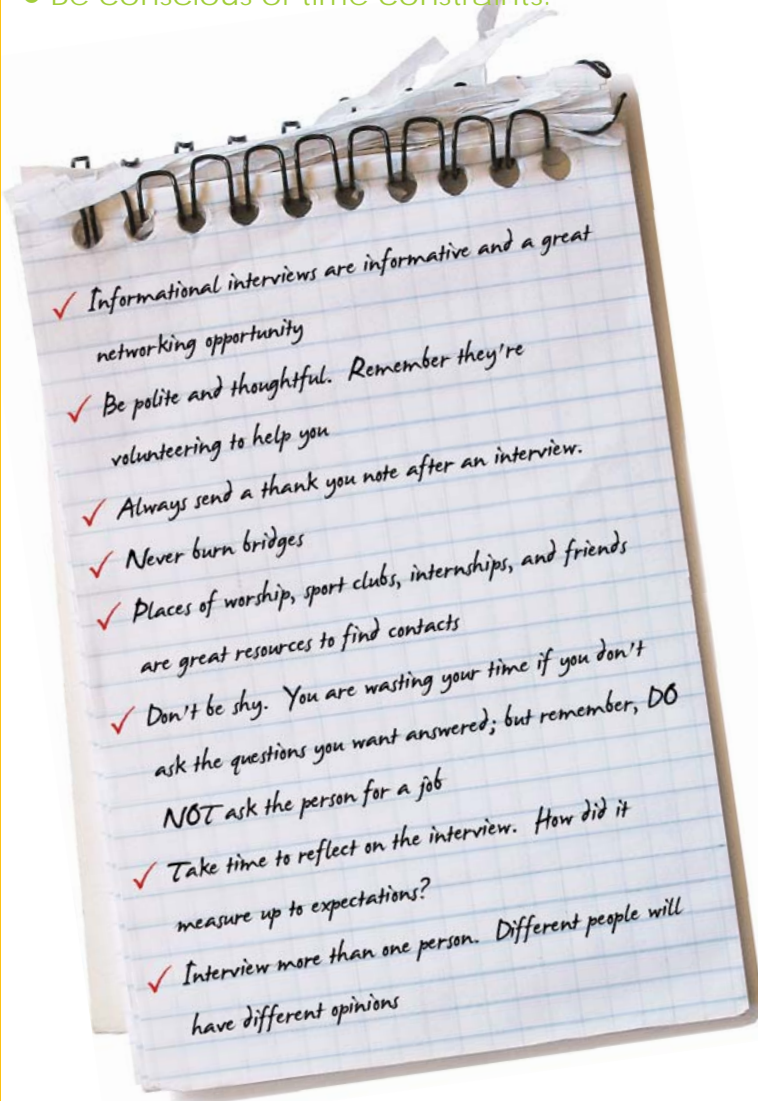 • Be conscious of time constraints.
✓ Informational interviews are informative and a great
networking opportunity
✓ Be polite and thoughtful. Remember they're
volunteering to help you
✓ Always send a thank you note after an interview.
✓ Never burn bridges
✓ Places of worship, sport clubs, internships, and friends
are great resources to find contacts
✓ Don't be shy. You are wasting your time if you don't
ask the questions you want answered; but remember, DO
NOT ask the person for a job
✓ Take time to reflect on the interview. How did it
measure up to expectations?
✓ Interview more than one person. Different people will
have different opinions